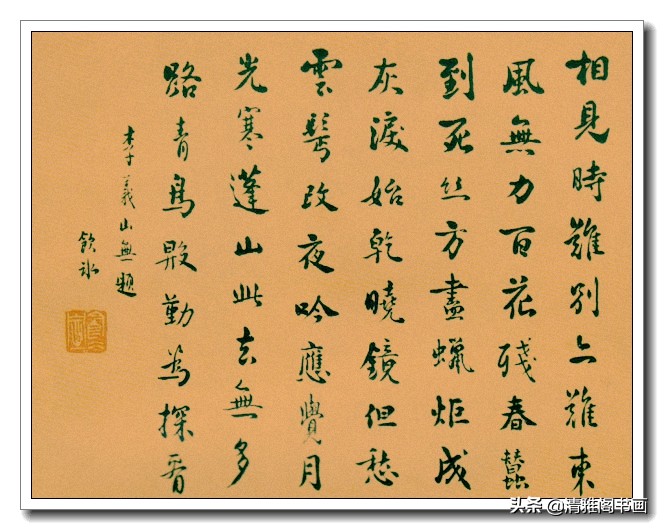 相見時難別亦難東
風無力百花殘春蠶
到死丝方盡蠟炬成
灰淚始乾曉鏡但愁
雲鬓改夜吟應覺月
光寒蓬山此去無多
路青鳥殷勤為探看
李義山無題
飲冰
头条 @清雅阁书画